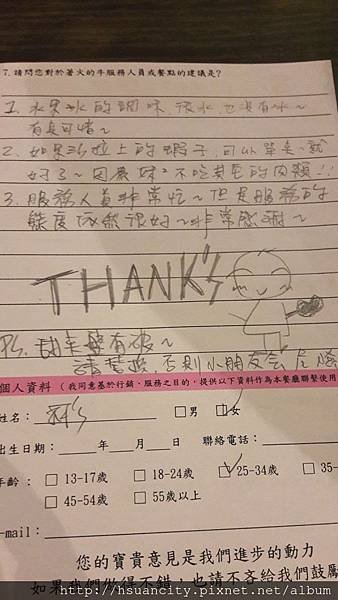 7. 請問您對於著火的牛服務人員或餐點的建議是?
1. 水果冰的調味,沒水,也沒有冰~
有點可惜~
2. 如果沙拉上的蝦子,可以單點就
好了~因為妹不吃其它的肉類!!
3. 服務人員非常忙~但是服務的
態度依然很好~非常感謝~
THANK's
PS. 甜美 有破~
請替換,否則小朋友會危險
個人資料 (我同意基於行銷、服務之目的,提供以下資料作為本餐廳聯繫使用
姓名: □男 □女
出生日期: 年 月 日 聯絡電話:
年齡: □ 13-17歲 □ 18-24歲 □ 25-34歲 □ 35-
□ 45-54歲 □ 55歲以上
-mail:
您的寶貴意見是我們進步的動力
如果我們做得不錯,也請不吝給我們鼓勵
http://hsuancity.pixnet.net/album